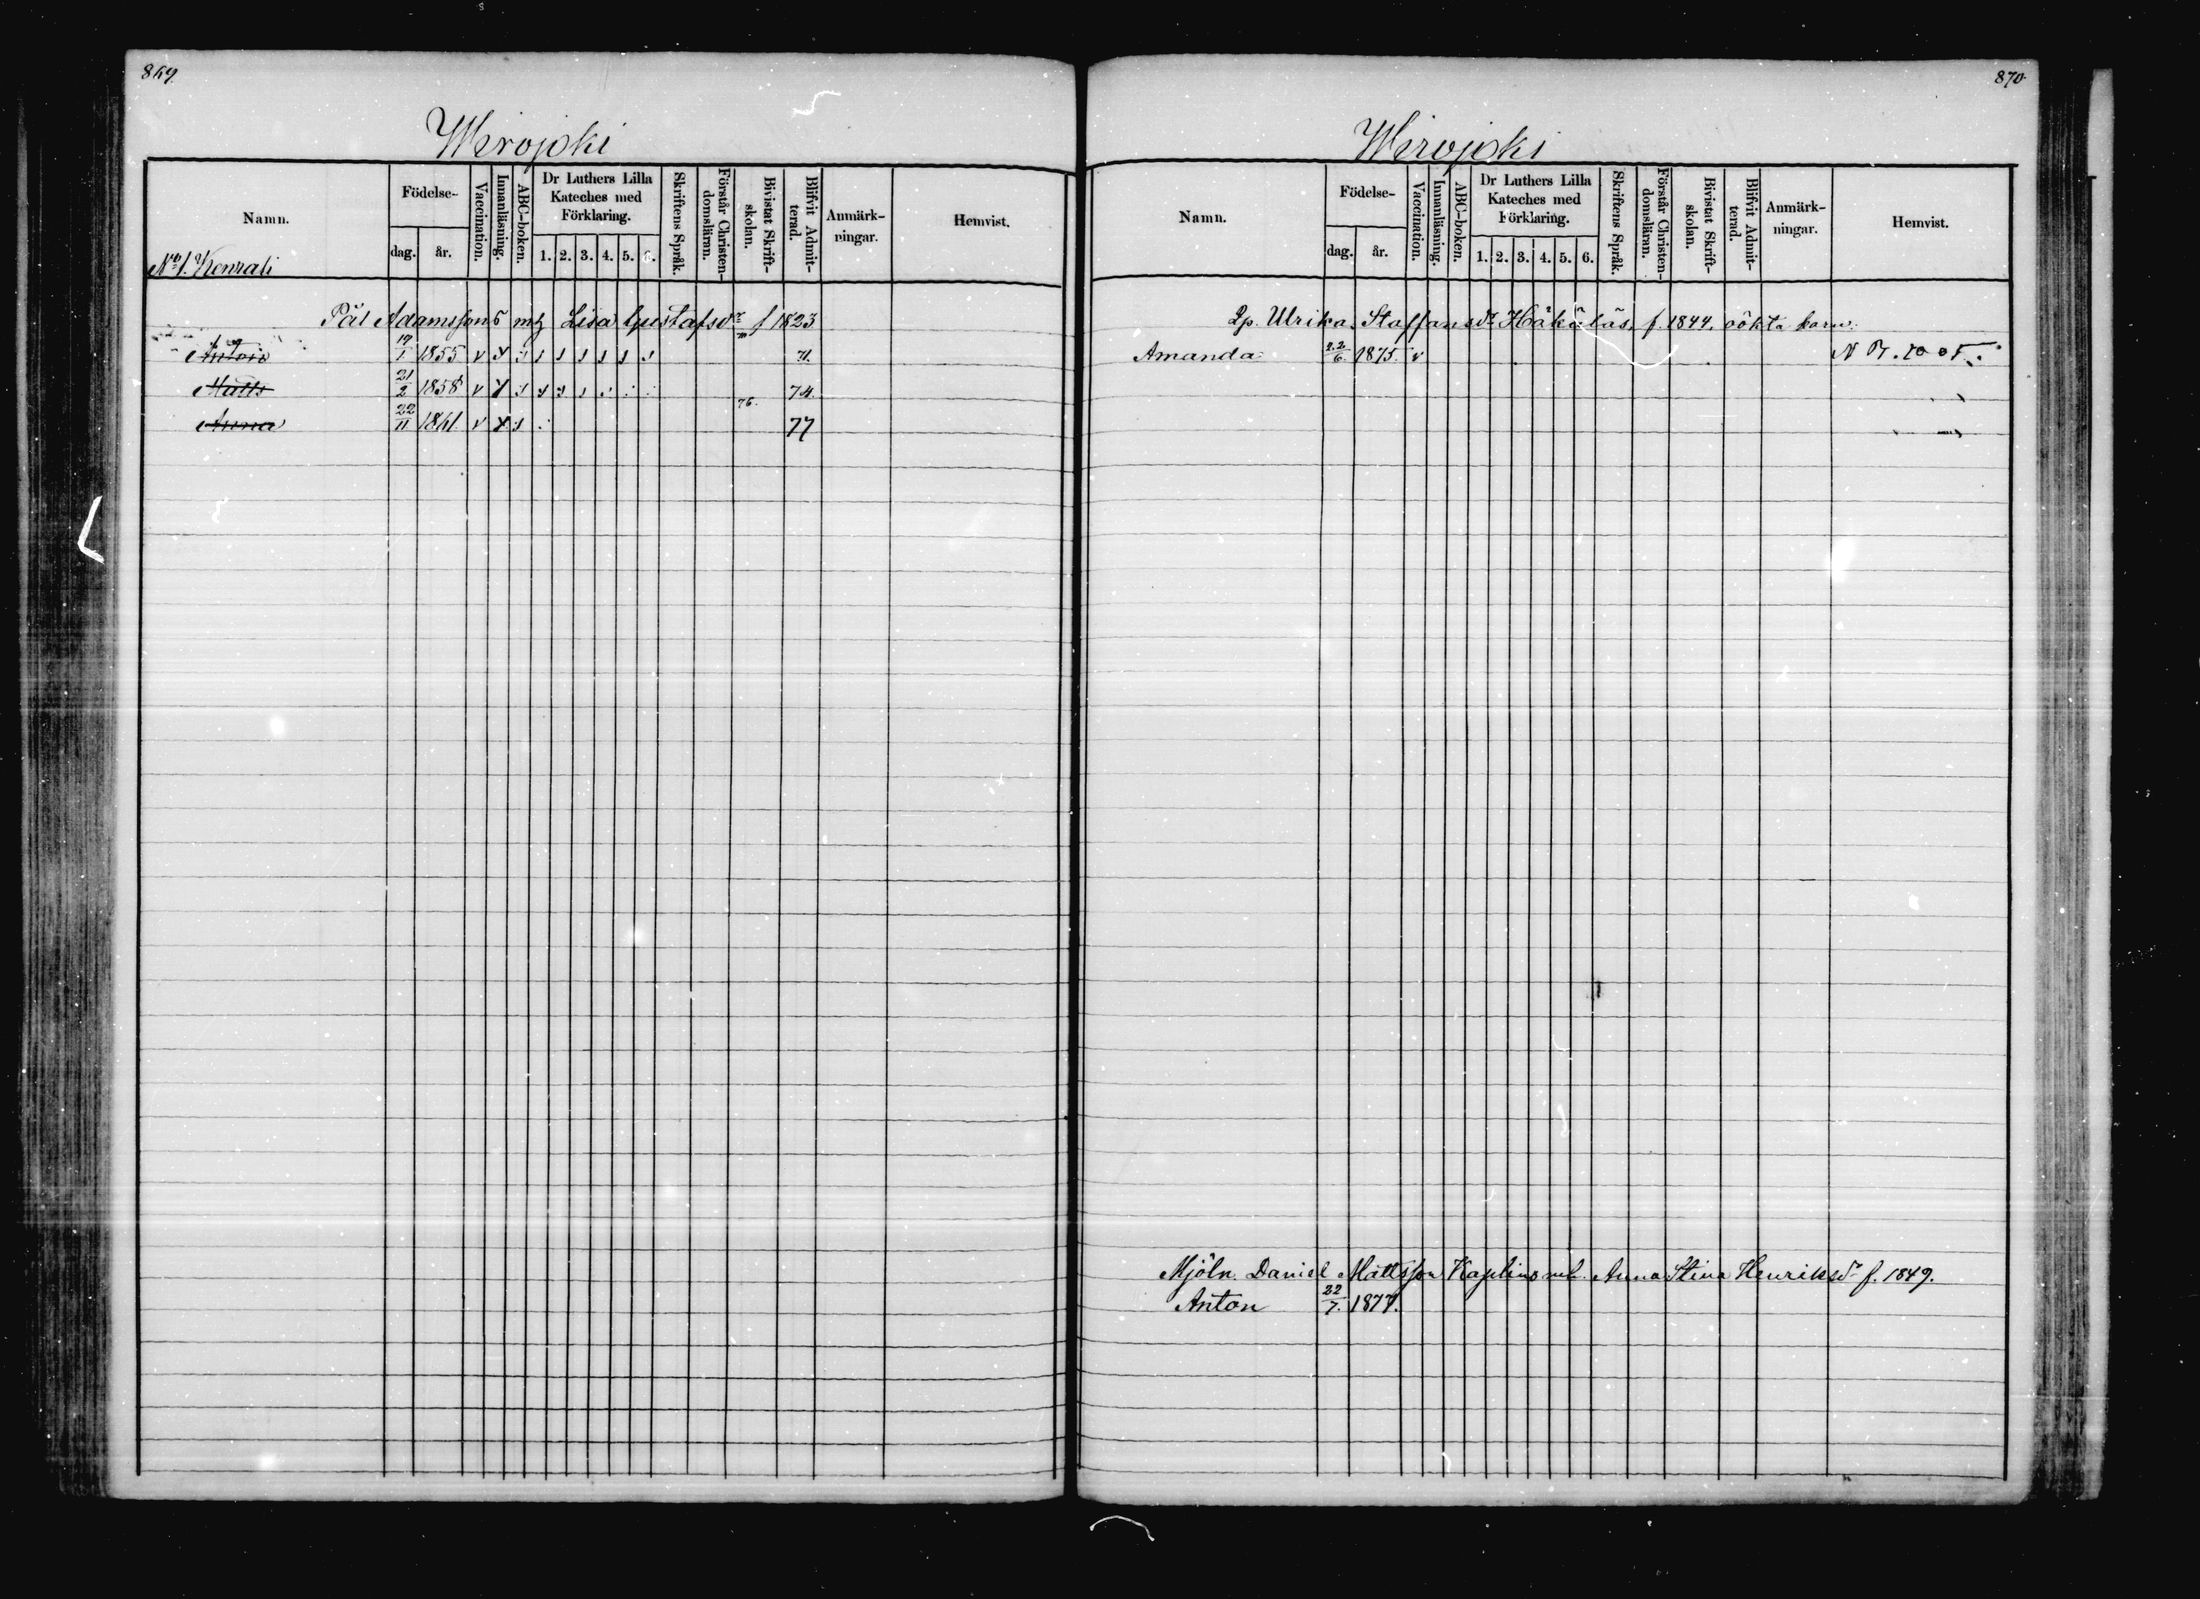 869.
Wirojoki
Namn. Födelse- dag. år. Vaccination. Innanläsning. ABC-boken. Dr Luthers Lilla Kateches med Förklaring. 1. 2. 3. 4. 5. 6. Skriftens Språk. Förstår Christendomsläran. Bivistat Skriftskolan. Blifvit Admitterad. Anmärkningar. Hemvist.
No 1.
Pål Adamssons Lisa Gustafsdr f 1823
19/1 1855 v 71.
Matts 21/2 1858 v 74.
Anna 22/11 1861 v 76. 77
870.
Wirojoki
Namn. Födelse- dag. år. Vaccination. Innanläsning. ABC-boken. Dr Luthers Lilla Kateches med Förklaring. 1. 2. 3. 4. 5. 6. Skriftens Språk. Förstår Christendomsläran. Bivistat Skriftskolan. Blifvit Admitterad. Anmärkningar. Hemvist.
Ulrika Staffansdr f. 1844. oökta barn.
Amanda 22/6. 1875. v
Mjöln. Daniel Mattsson Anna Stina Henriksdr f. 1849.
Anton 22/7. 1877.